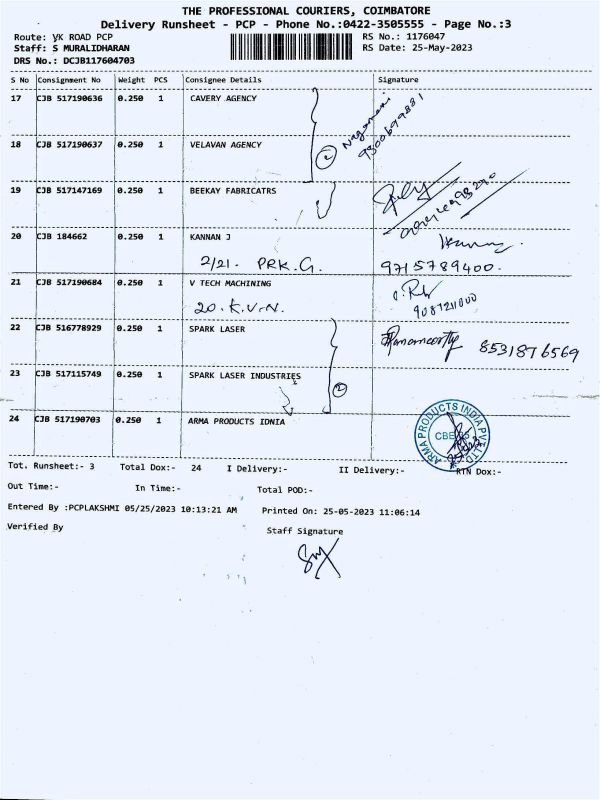 THE PROFESSIONAL COURIERS, COIMBATORE
Delivery Runsheet - PCP - Phone No.:0422-3505555 - Page No.:3
Route: VK ROAD PCP RS No.: 1176047
Staff: S MURALIDHARAN RS Date: 25-May-2023
DRS No.: DCJB117604703
S No Consignment No Weight PCS Consignee Details Signature
17 CJB 517190636 0.250 1 CAVERY AGENCY
Nagamani
18 CJB 517190637 0.250 1 VELAVAN AGENCY
19 CJB 517147169 0.250 1 BEEKAY FABRICATRS
20 CJB 184662 0.250 1 KANNAN J
2/21. PRK.G. 9715789400.
21 CJB 517190684 0.250 1 V TECH MACHINING
20. K.V.N. 9087211000
22 CJB 516778929 0.250 1 SPARK LASER
8531876569
23 CJB 517115749 0.250 1 SPARK LASER INDUSTRIES
2
24 CJB 517190703 0.250 1 ARMA PRODUCTS IDNIA
ARMA PRODUCTS INDIA PVT LTD
CBE
Tot. Runsheet:- 3 Total Dox:- 24 I Delivery:- II Delivery:- RTN Dox:-
Out Time:- In Time:- Total POD:-
Entered By :PCPLAKSHMI 05/25/2023 10:13:21 AM Printed On: 25-05-2023 11:06:14
Verified By Staff Signature